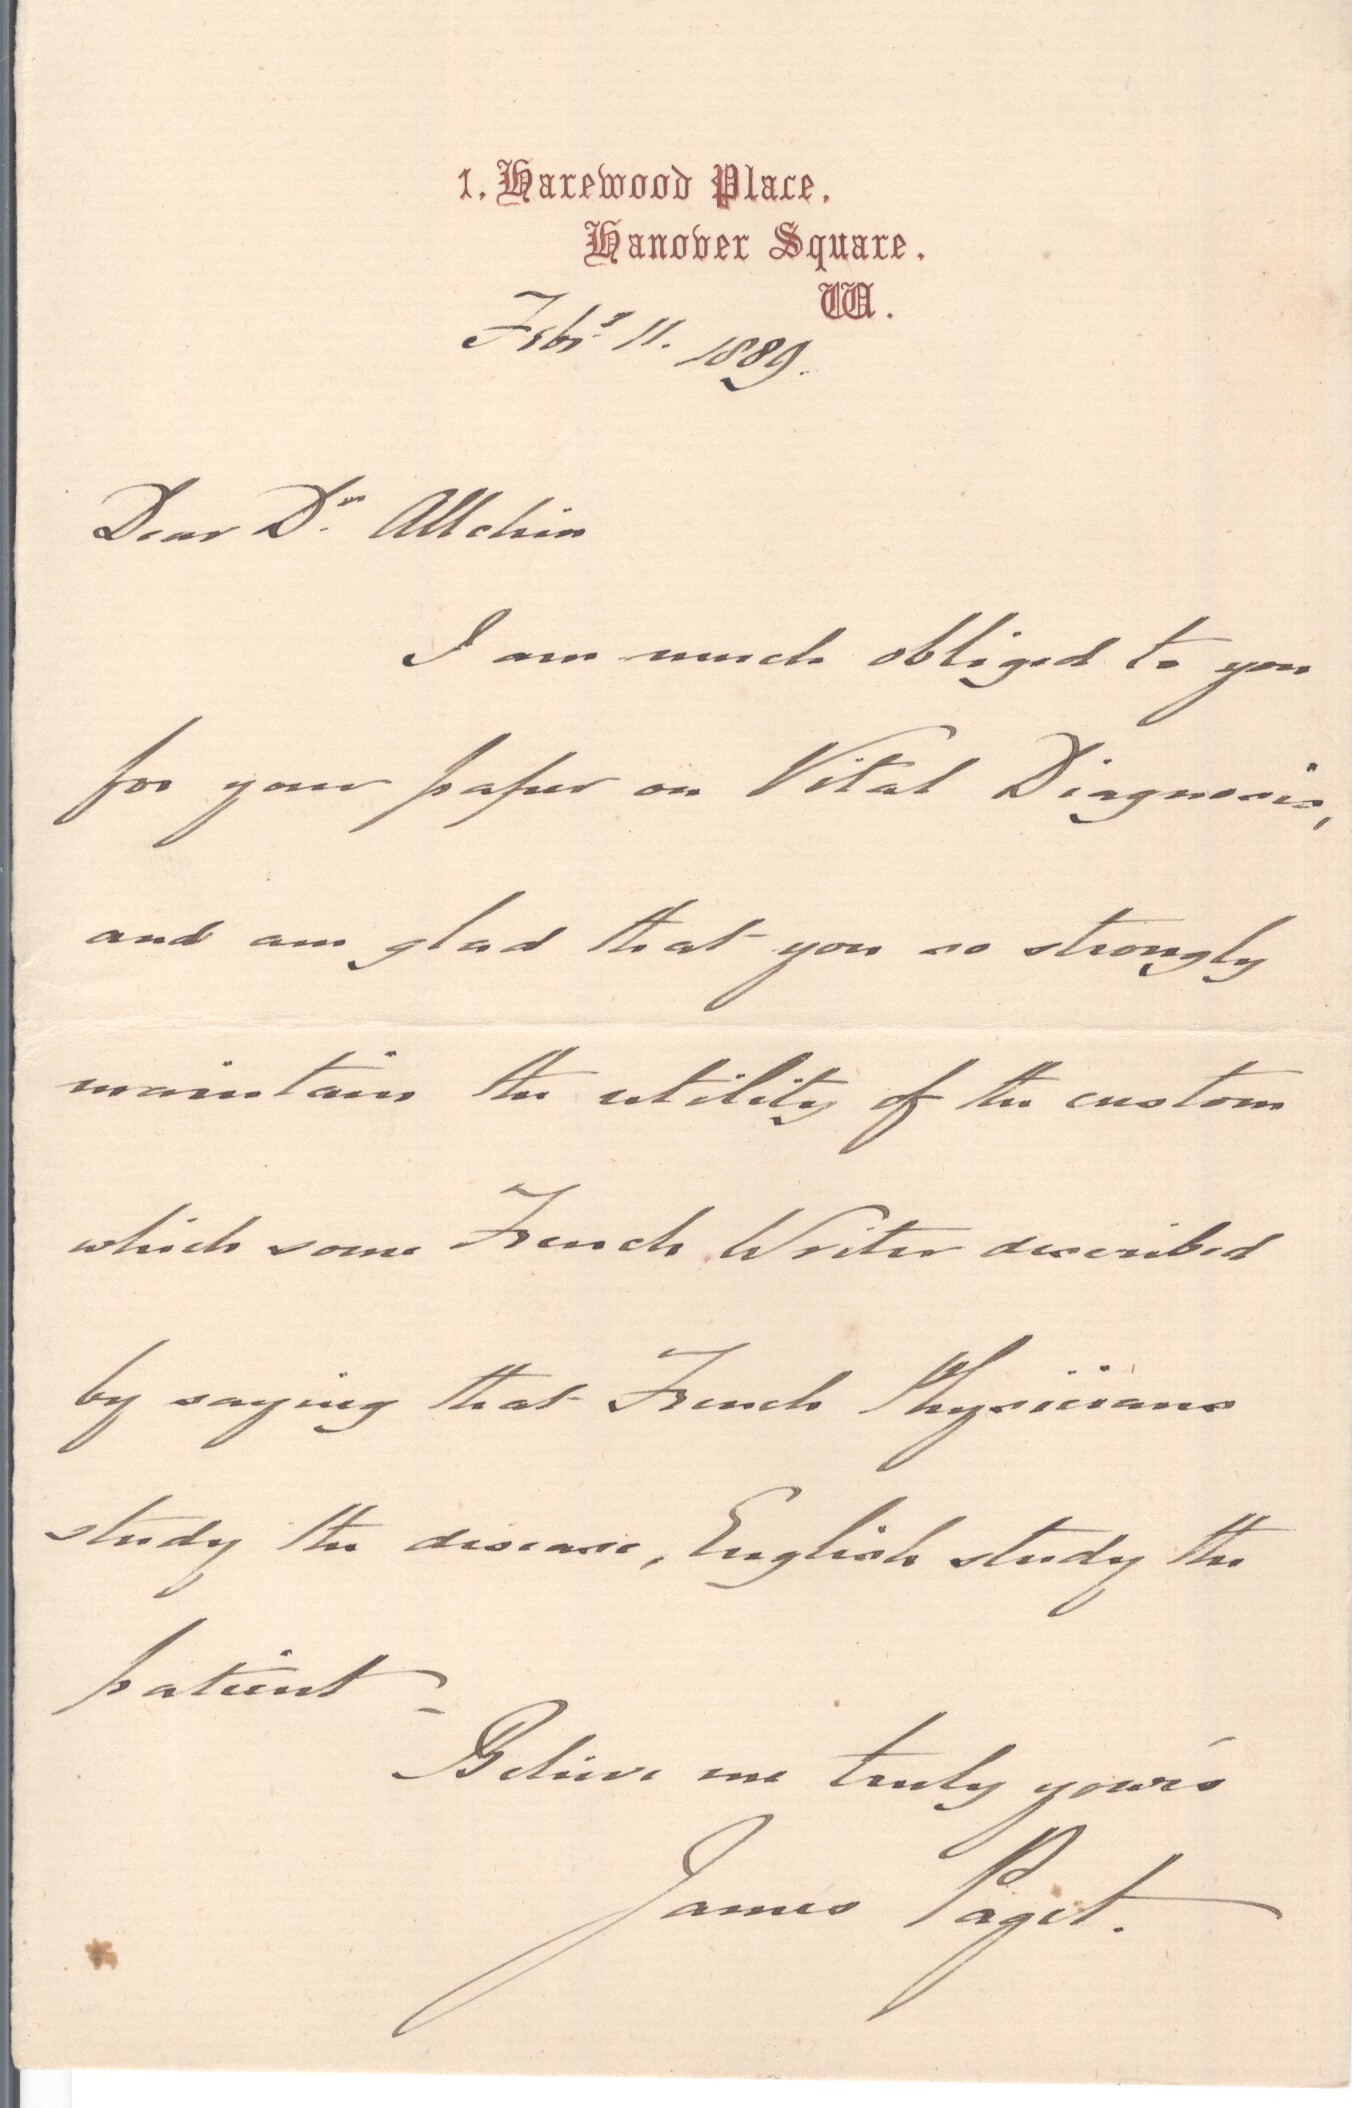 1. Harewood Place.
Hanover Square.
W.
Feby. 11. 1889.
Dear Dr. Allchin
I am much obliged to you
for your paper on Vital Diagnosis,
and am glad that you so strongly
maintain the utility of the custom
which some French Writer described
by saying that French Physicians
study the disease, English study the
patient -
Believe me truly your's
James Paget.